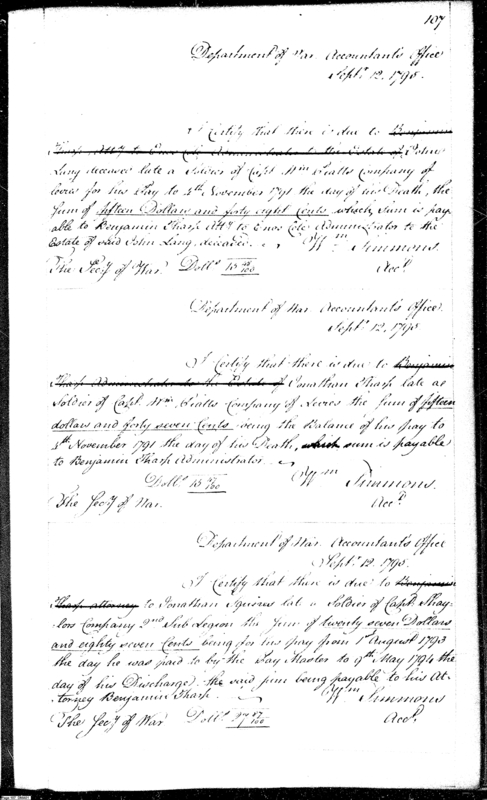 107
Department of War Accountant's Office
Sept. 12. 1795.
I Certify that there is due to Benjamin
Tharp Atty to Enos Cole Administrator to the Estate of John
Lang deceased late a Soldier of Capt Wm Piatts Company of
Levies for his Pay to 4th November 1791 the day of his Death, the
Sum of fifteen Dollars and forty eight Cents which sum is pay-
able to Benjamin Tharp Atty to Enos Cole Administrator to the
Estate of said John Lang, deceased.
Wm Simmons.
The Secy of War. Dolls 15 48/100 Acct
Department of War Accountants Office.
Sept. 12. 1795
I Certify that there is due to Benjamin
Tharp Administrator to the Estate of Jonathan Tharp late a
Soldier of Capt Wm Piatts Company of Levies the Sum of fifteen
dollars and forty seven Cents being the Balance of his pay to
4th November 1791 the day of his Death, which sum is payable
to Benjamin Tharp Administrator.
Dolls 15 47/100 Wm Simmons.
The Secy of War. Acct
Department of War Accountants Office
Sept. 12. 1795.
I Certify that there is due to Benjamin
Tharp attorney to Jonathan late a Soldier of Capt Shay-
lors Company 2nd Sub Legion the Sum of twenty seven Dollars
and eighty seven Cents being for his pay from 1 August 1793
the day he was paid to by the Pay Master to 9th May 1794 the
day of his Discharge, the said sum being payable to his At-
torney Benjamin Tharp.
Wm Simmons
The Secy of War Dolls 27 87/100 Acct